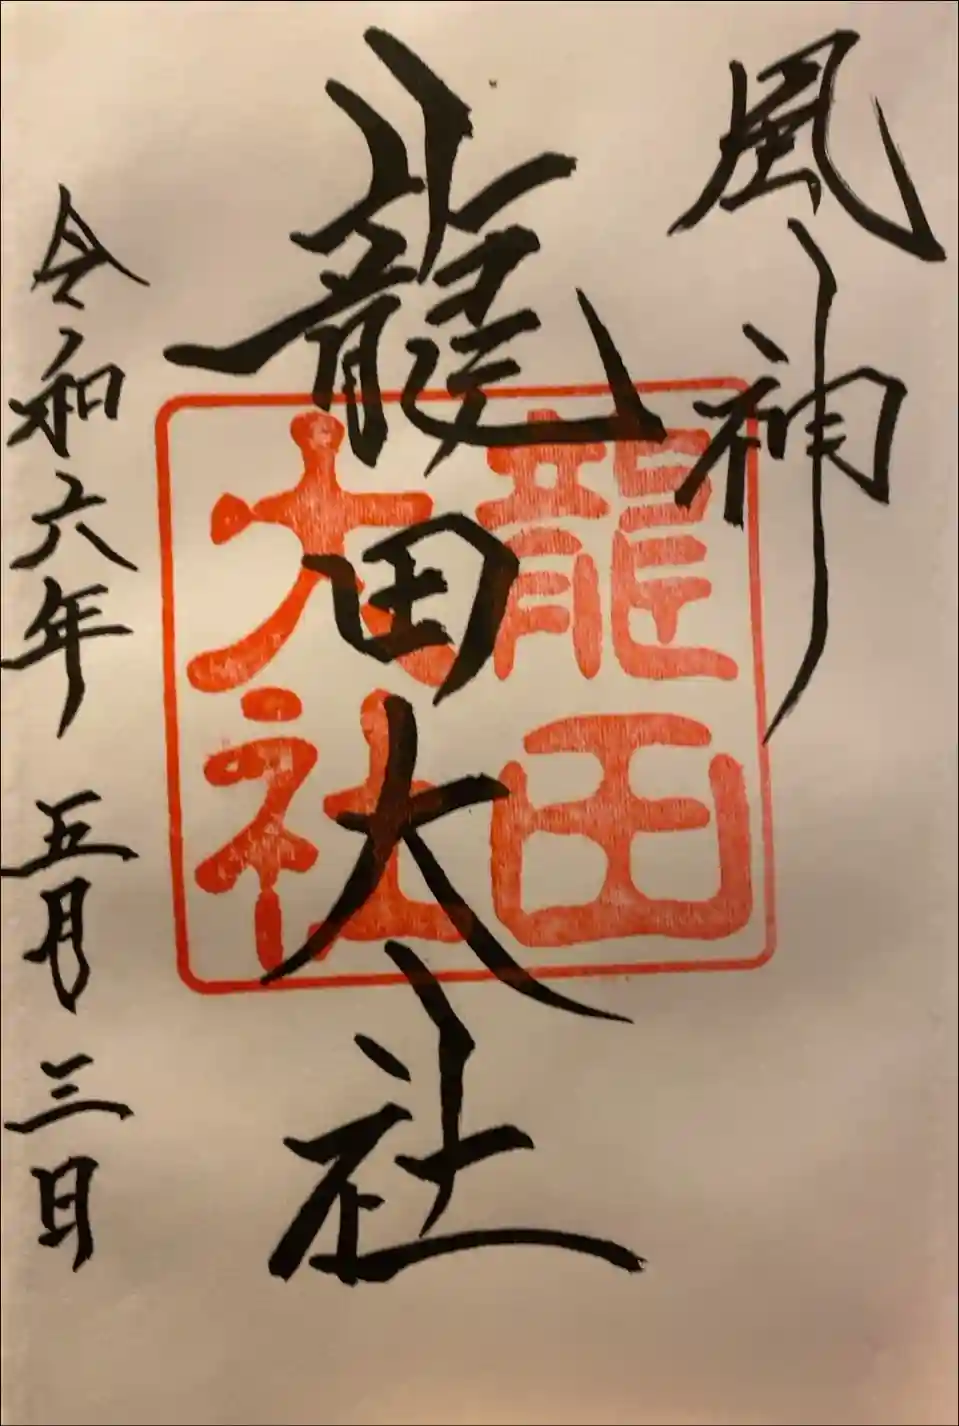 風神
龍田大社
龍田
大社
令和六年 五月 三日